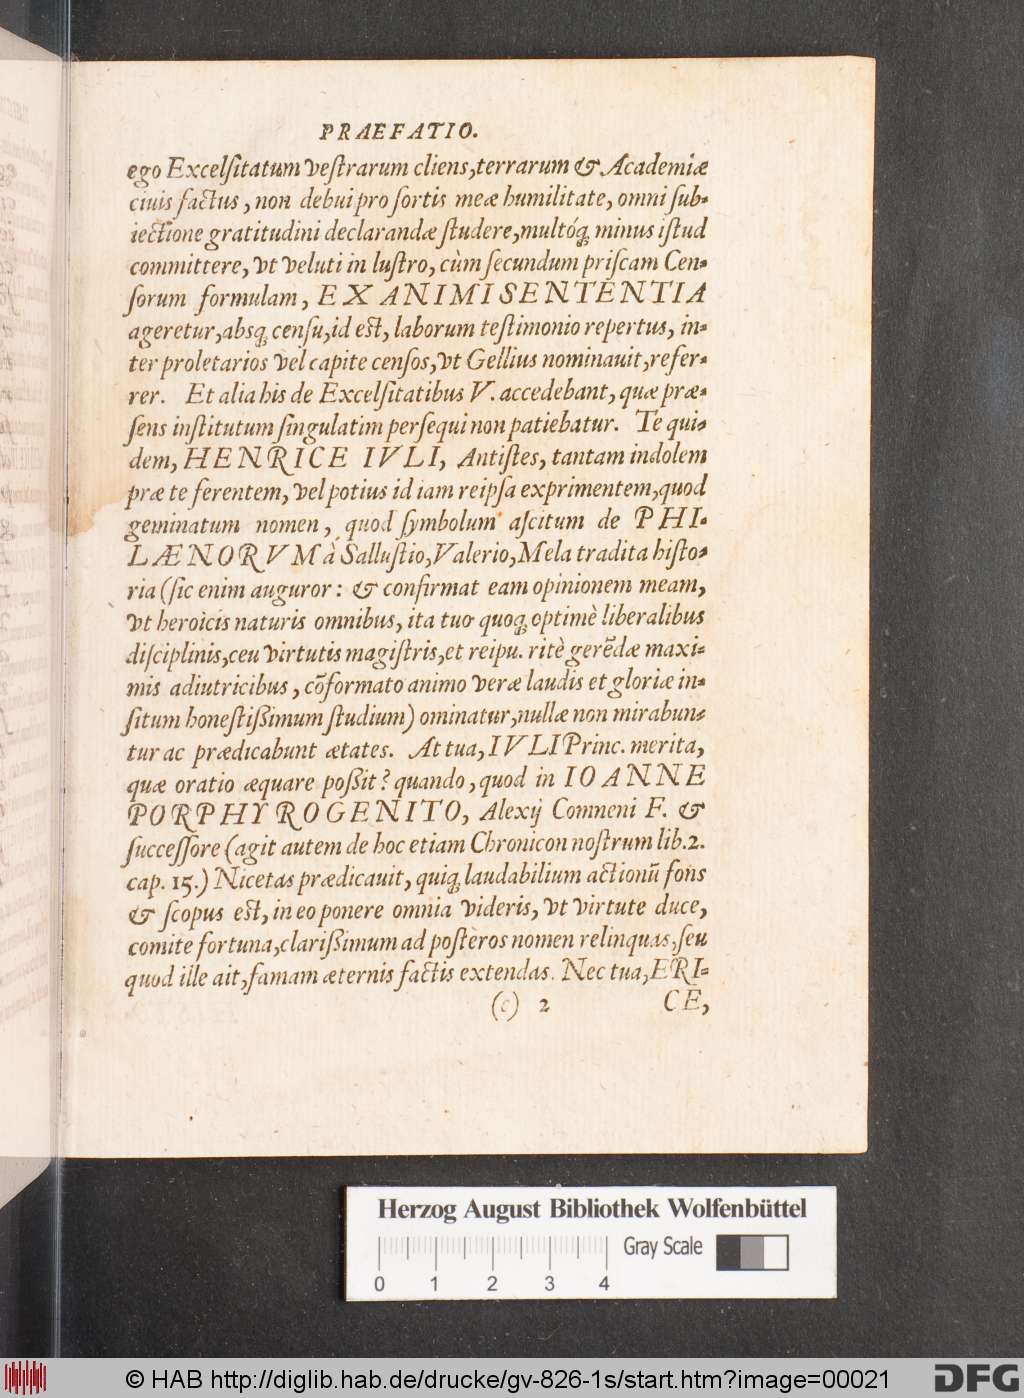 PRAEFATIO.
ego Excelſitatum veſtrarum cliens, terrarum & Academiæ
ciuis factus, non debui pro ſortis meæ humilitate, omni ſub-
iectione gratitudini declarandæ ſtudere, multóq́ minus iſtud
committere, vt veluti in luſtro, cùm ſecundum priſcam Cen-
ſorum formulam, EX ANIMI SENTENTIA
ageretur, absq́ cenſu, id eſt, laborum teſtimonio repertus, in-
ter proletarios vel capite cenſos, vt Gellius nominauit, refer-
rer. Et alia his de Excelſitatibus V. accedebant, quæ præ-
ſens inſtitutum ſingulatim perſequi non patiebatur. Te qui-
dem, HENRICE IVLI, Antiſtes, tantam indolem
præ te ferentem, vel potius id iam reipſa exprimentem, quod
geminatum nomen, quod ſymbolum aſcitum de PHI-
LÆNORVM à Salluſtio, Valerio, Mela tradita hiſto-
ria (ſic enim auguror: & confirmat eam opinionem meam,
vt heroicis naturis omnibus, ita tuo quoq́ optimè liberalibus
diſciplinis, ceu virtutis magiſtris, et reipu. ritè gerẽdæ maxi-
mis adiutricibus, cõformato animo veræ laudis et gloriæ in-
ſitum honeſtißimum ſtudium) ominatur, nullæ non mirabun-
tur ac prædicabunt ætates. At tua, IVLI Princ. merita,
quæ oratio æquare poßit? quando, quod in IOANNE
PORPHYROGENITO, Alexij Comneni F. &
ſucceſſore (agit autem de hoc etiam Chronicon noſtrum lib. 2.
cap. 15.) Nicetas prædicauit, quiq́ laudabilium actionũ fons
& ſcopus eſt, in eo ponere omnia videris, vt virtute duce,
comite fortuna, clarißimum ad poſteros nomen relinquas, ſeu
quod ille ait, famam æternis factis extendas. Nec tua, ERI-
(c) 2 CE,
Herzog August Bibliothek Wolfenbüttel
Gray Scale
0 1 2 3 4
© HAB http://diglib.hab.de/drucke/gv-826-1s/start.htm?image=00021
DFG